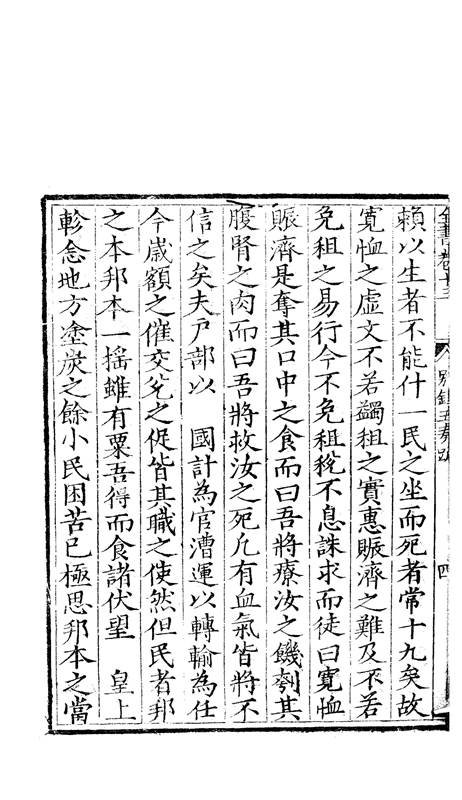 全書卷十三　別錄五奏疏　四
賴以生者不能什一民之坐而死者常十九矣故
寬恤之虛文不若蠲租之實惠賑濟之難及不若
免租之易行今不免租稅不息誅求而徒曰寬恤
賑濟是奪其口中之食而曰吾將療汝之饑刳其
腹腎之肉而曰吾將救汝之死凡有血氣皆將不
信之矣夫戶部以　國計為官漕運以轉輸為任
今歲額之催交兌之促皆其職之使然但民者邦
之本邦本一搖雖有粟吾得而食諸伏望　皇上
軫念地方塗炭之餘小民困苦已極思邦本之當